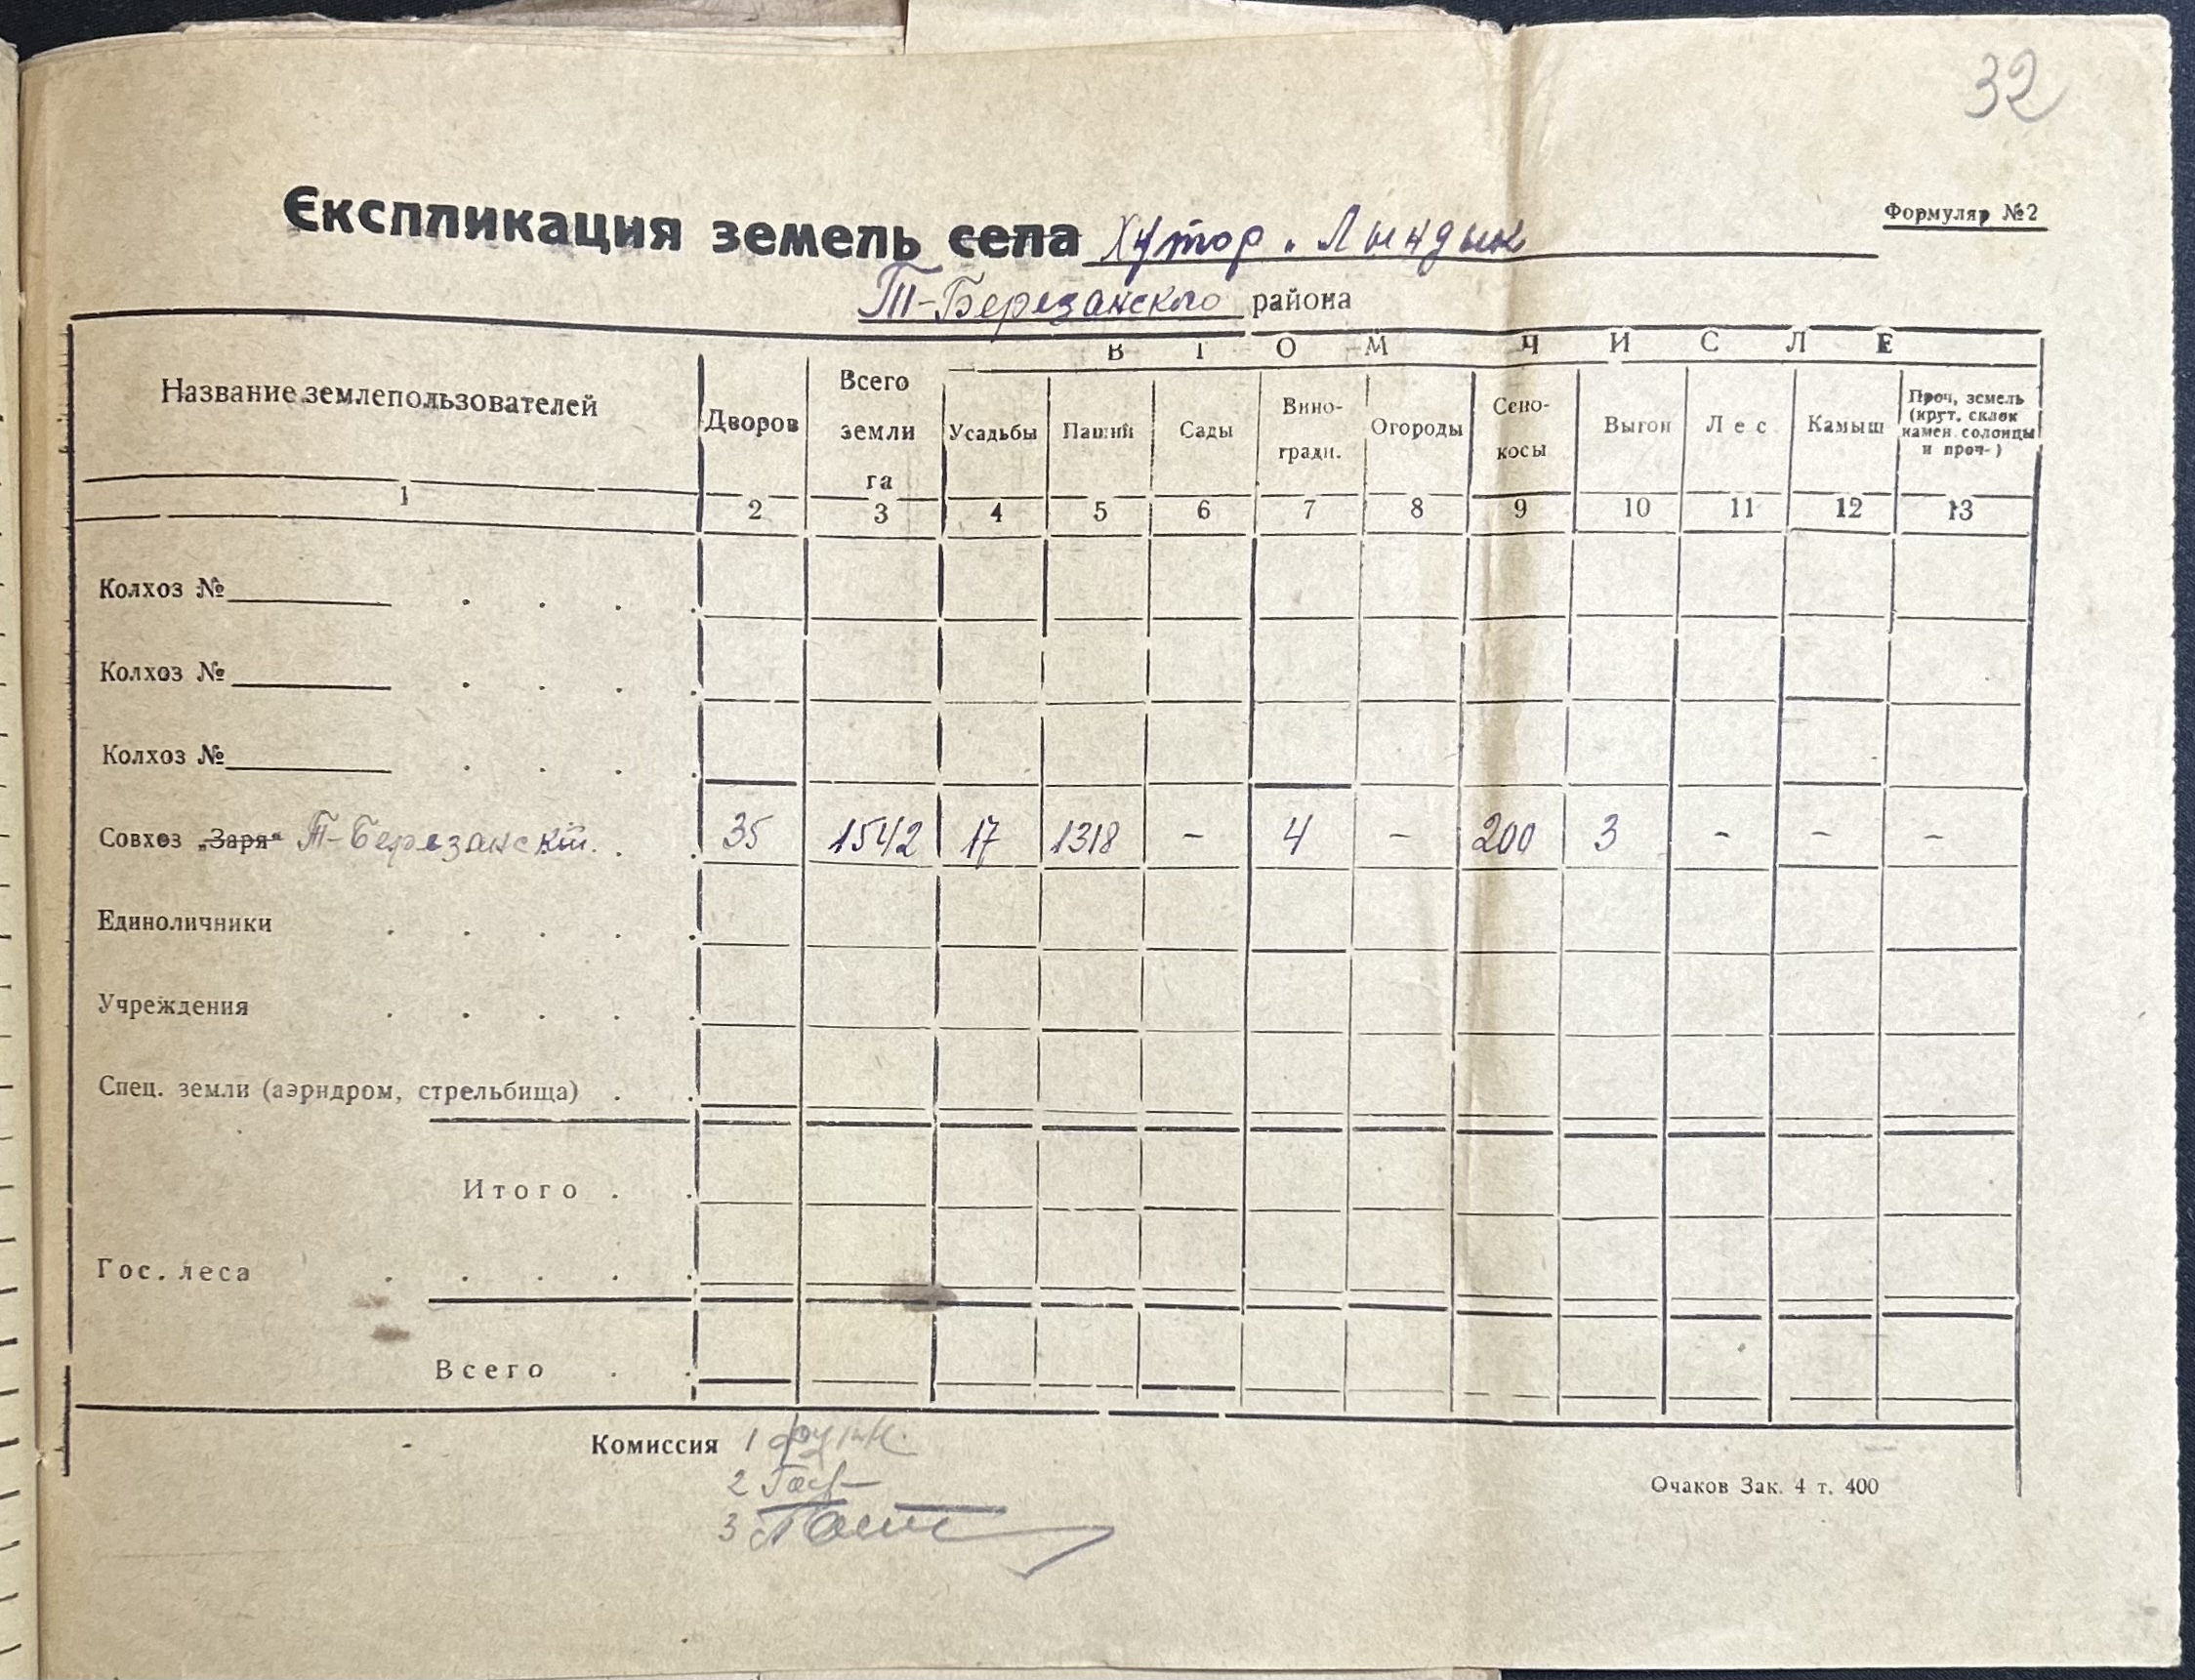 32
Формуляр №2
Єкспликация земель села Хутор. Лындык
Т-Березанского района
Название землепользователей
Дворов
Всего земли га
В ТОМ ЧИСЛЕ
Усадьбы
Пашни
Сады
Вино-
градн.
Огороды
Сено-
косы
Выгон
Лес
Камыш
Проч, земель
(крут. склок
камен. солонцы
и проч-)
1 2 3 4 5 6 7 8 9 10 11 12 13
Колхоз №
Колхоз №
Колхоз №
Совхоз „Заря“ Т-Березанский. 35 1542 17 1318 - 4 - 200 3 - - -
Единоличники
Учреждения
Спец. земли (аэрндром, стрельбища)
Итого
Гос. леса
Всего
Комиссия 1
2
3
Очаков Зак. 4 т. 400